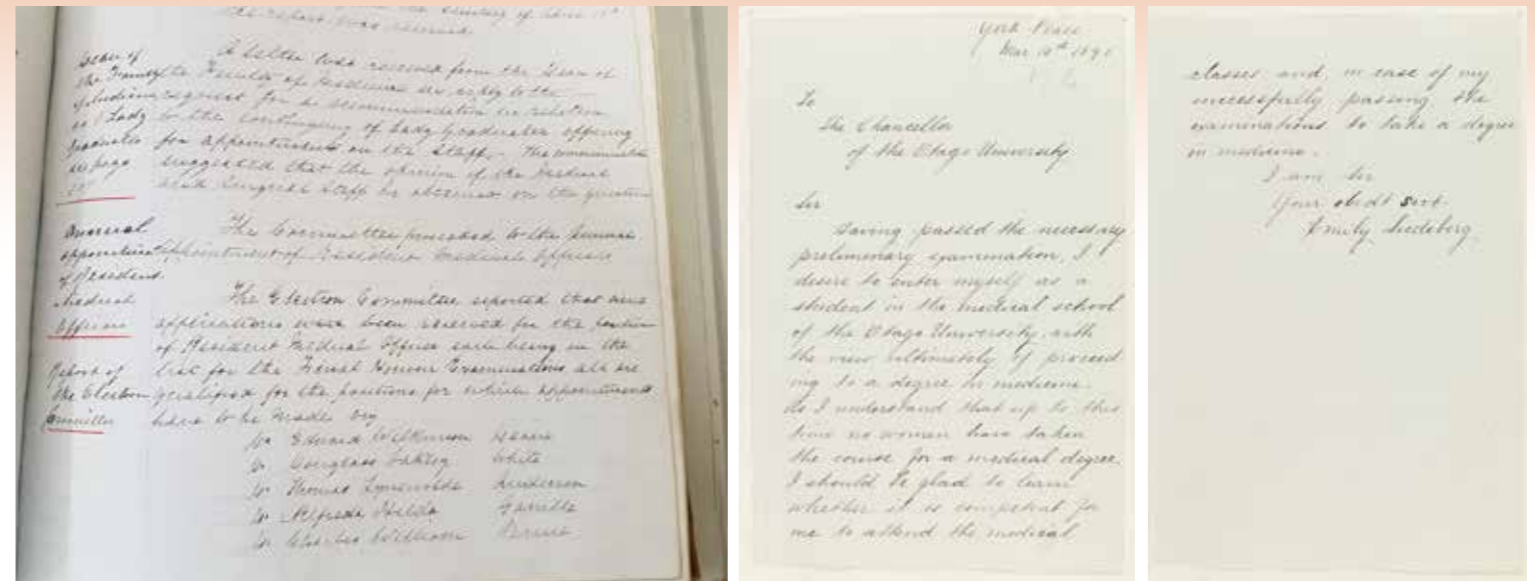 the report was received
Letter of
the Faculty
of Medicine
re Lady
Graduates
see page
A letter was received from the Dean of
the Faculty of Medicine in reply to the
request for a recommendation in relation
to the contingency of Lady Graduates offering
for appointment on the Staff. The communication
suggested that the opinion of the Medical
and Surgical Staff be obtained on the question
Annual
appointment
of Resident
Medical
Officers
The Committee proceeded to the annual
appointment of Resident Medical Officers
Report of
the Election
Committee
The Election Committee reported that nine
applications have been received for the position
of Resident Medical Officer each being in the
list for the Final Honour Examinations all are
qualified for the positions for which appointments
have to be made viz
Dr Edward Wilkinson
Dr Douglass White
Dr Thomas Anderson
Dr Alfreda Hilda Gamble
Dr Charles William
York Place
Mar 10th 1891
To
The Chancellor
of the Otago University
Sir
Having passed the necessary
preliminary examination, I
desire to enter myself as a
student in the medical school
of the Otago University, with
the view ultimately of proceed
ing to a degree in medicine.
As I understand that up to this
time no women have taken
the course for a medical degree,
I should be glad to learn
whether it is competent for
me to attend the medical
classes and, in case of my
successfully passing the
examinations to take a degree
in medicine.
I am Sir
Your obedt Servt
Emily Siedeberg